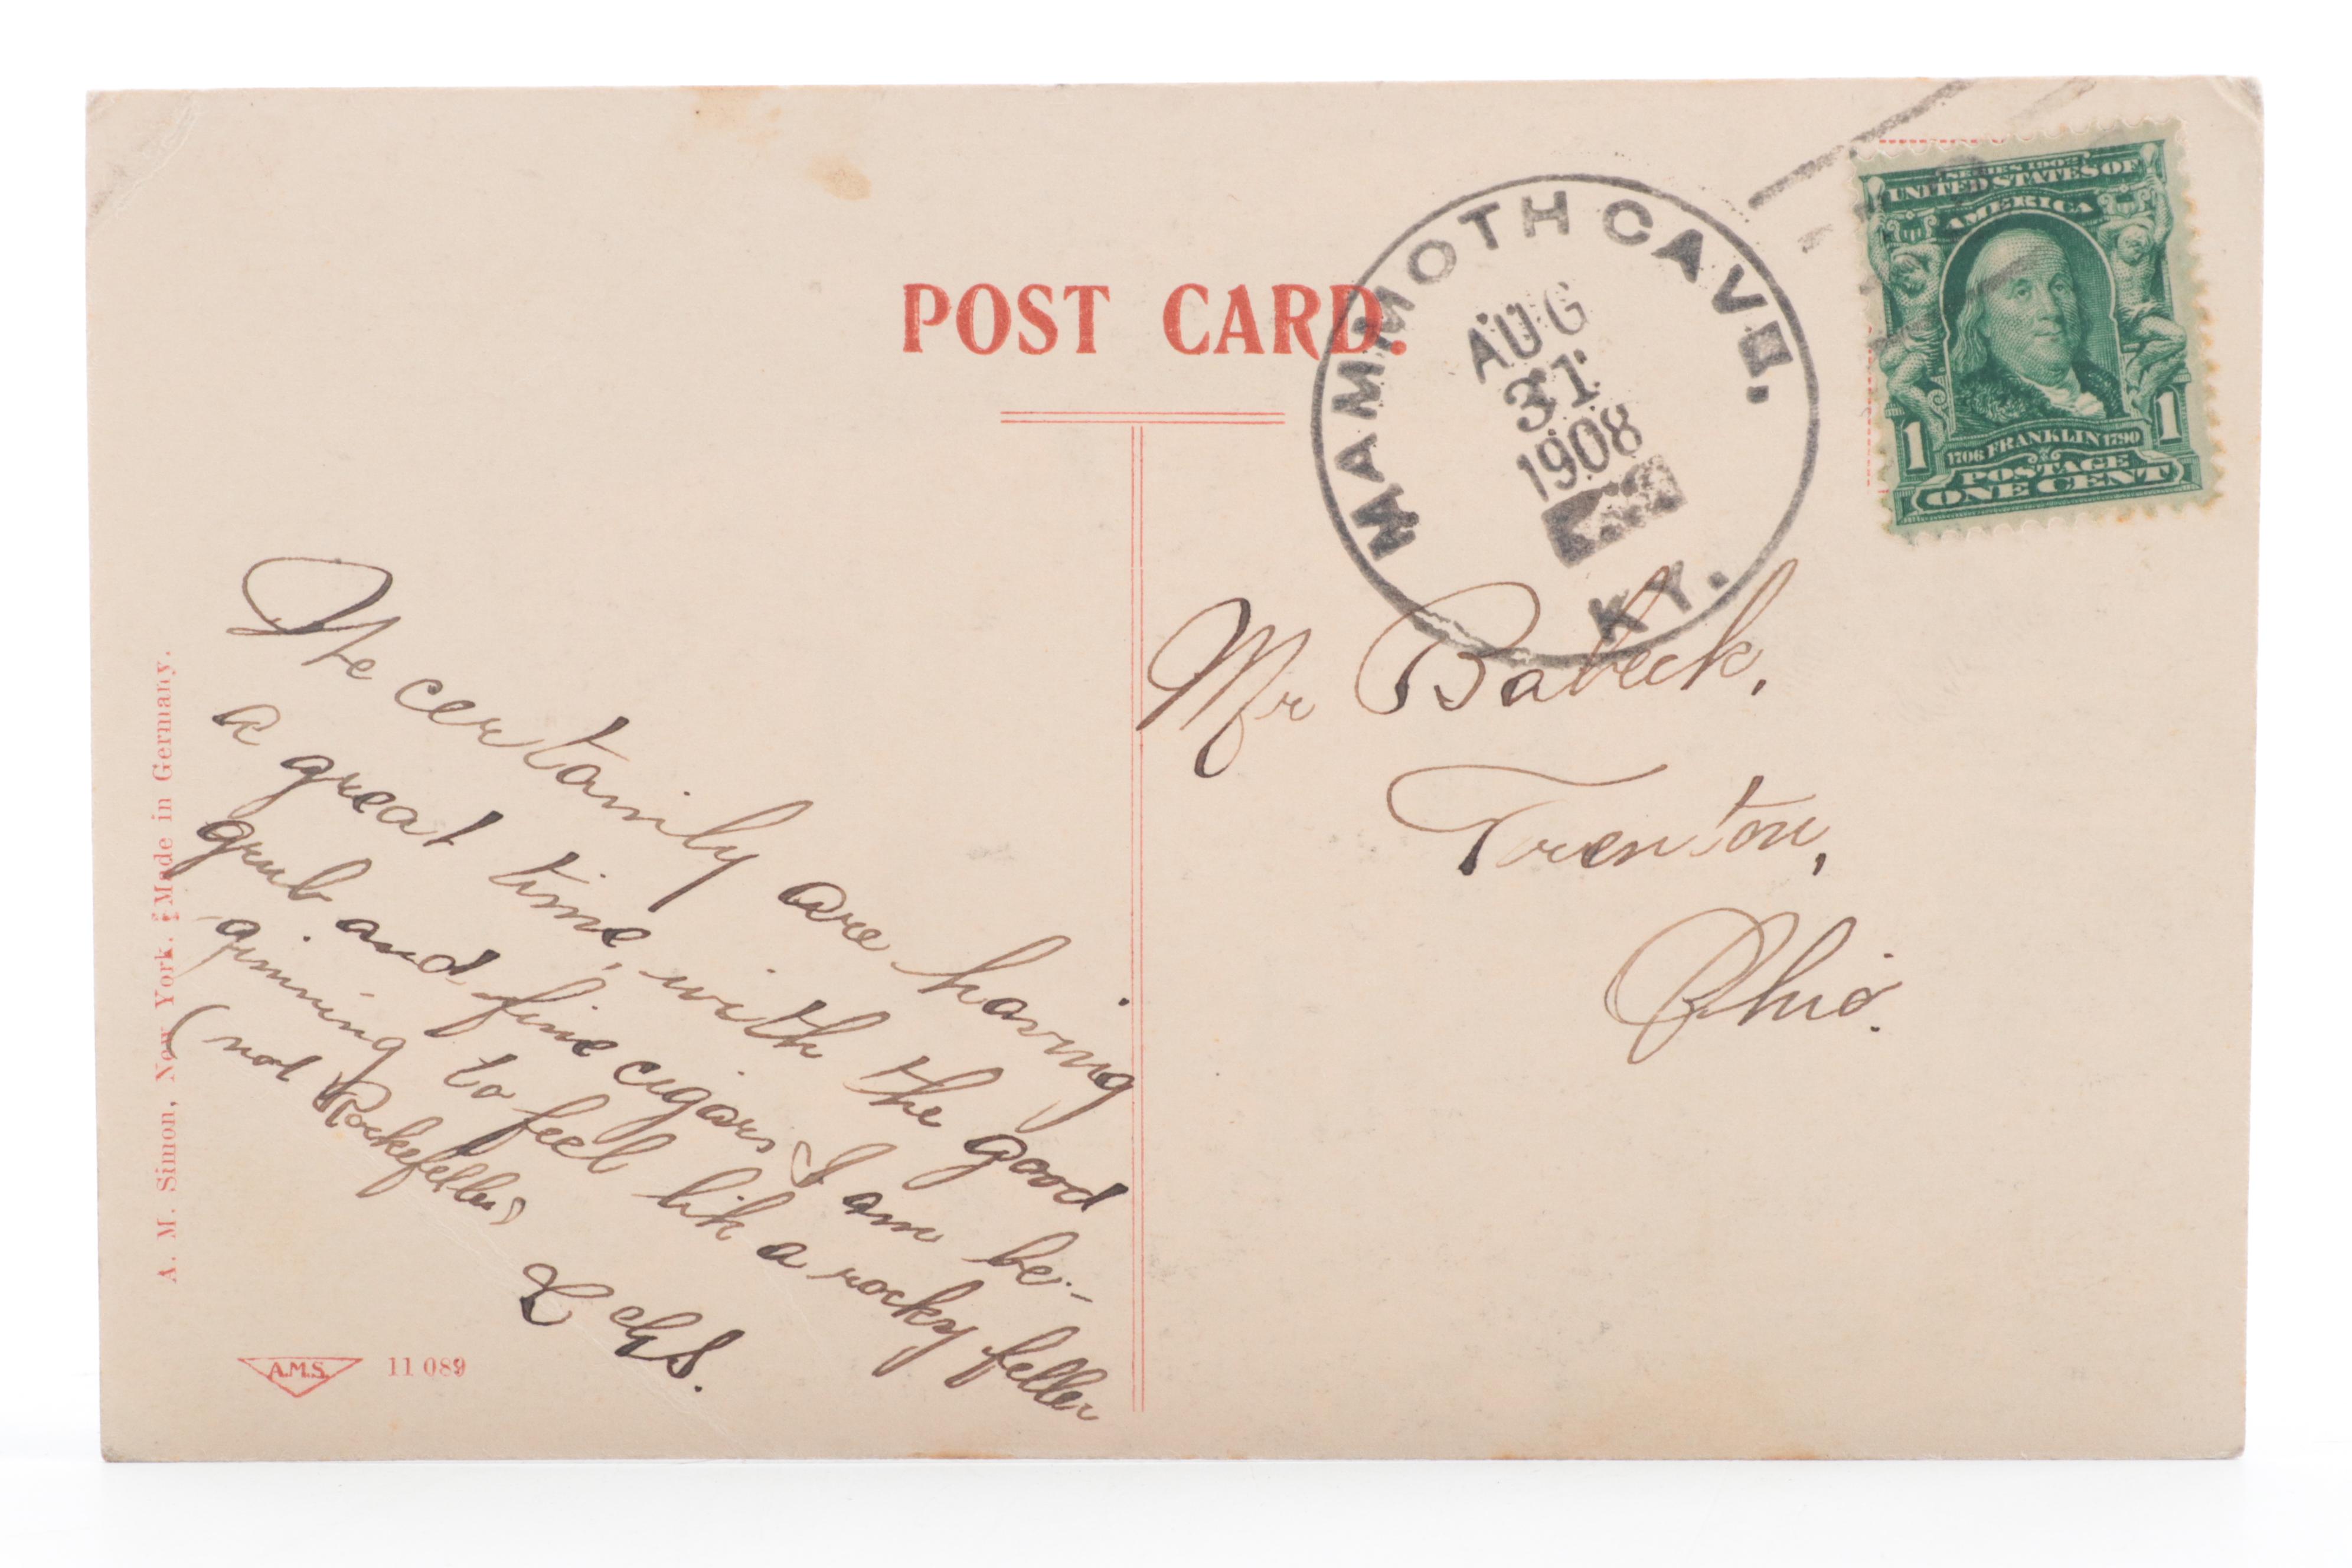 POST CARD.
MAMMOTH CAVE.
KY.
AUG
31
1908
SERIES 1902
UNITED STATES OF
AMERICA
1706 FRANKLIN 1790
POSTAGE
ONE CENT
1 1
We certainly are having
a great time, with the good
grub and fine cigars I am be-
ginning to feel lik a rocky feller
(not Rockefeller)
Mr Babeck,
Trenton,
Ohio.
A. M. Simon, New York. Made in Germany.
A.M.S. 11 089